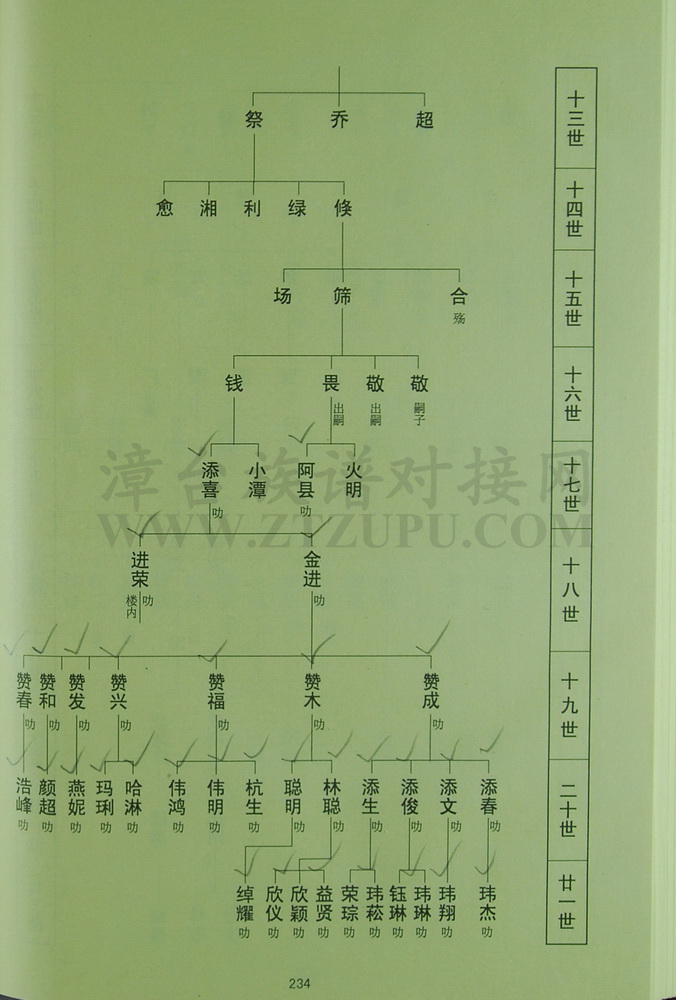 十三世
祭 乔 超
十四世
愈 湘 利 绿 倏
十五世
场 筛 合
殇
十六世
钱 畏 敬 敬
出嗣 出嗣 嗣子
十七世
添喜 小潭 阿县 火明
叻 叻
漳台族谱对接网
WWW.ZTZUPU.COM
十八世
进荣 金进
楼内 叻 叻
十九世
赞春 赞和 赞发 赞兴 赞福 赞木 赞成
叻 叻 叻 叻 叻 叻 叻
二十世
浩峰 颜超 燕妮 玛琍 哈淋 伟鸿 伟明 杭生 聪明 林聪 添生 添俊 添文 添春
叻 叻 叻 叻 叻 叻 叻 叻 叻 叻 叻 叻 叻 叻
廿一世
绰耀 欣仪 欣颖 益贤 荣琮 玮菘 钰琳 玮琳 玮翔 玮杰
叻 叻 叻 叻 叻 叻 叻 叻 叻 叻
234